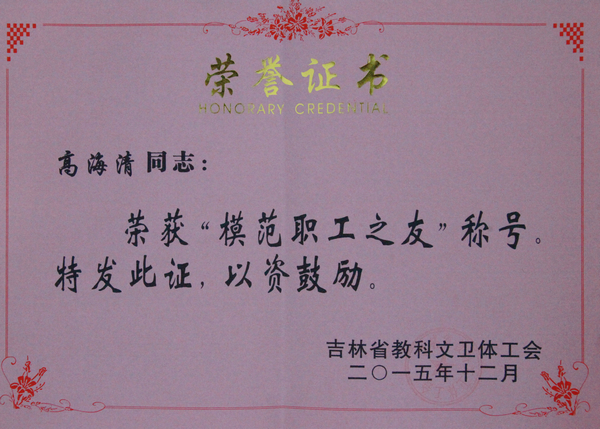 荣誉证书
HONORARY CREDENTIAL
高海清同志：
荣获“模范职工之友”称号。
特发此证，以资鼓励。
吉林省教科文卫体工会
二〇一五年十二月